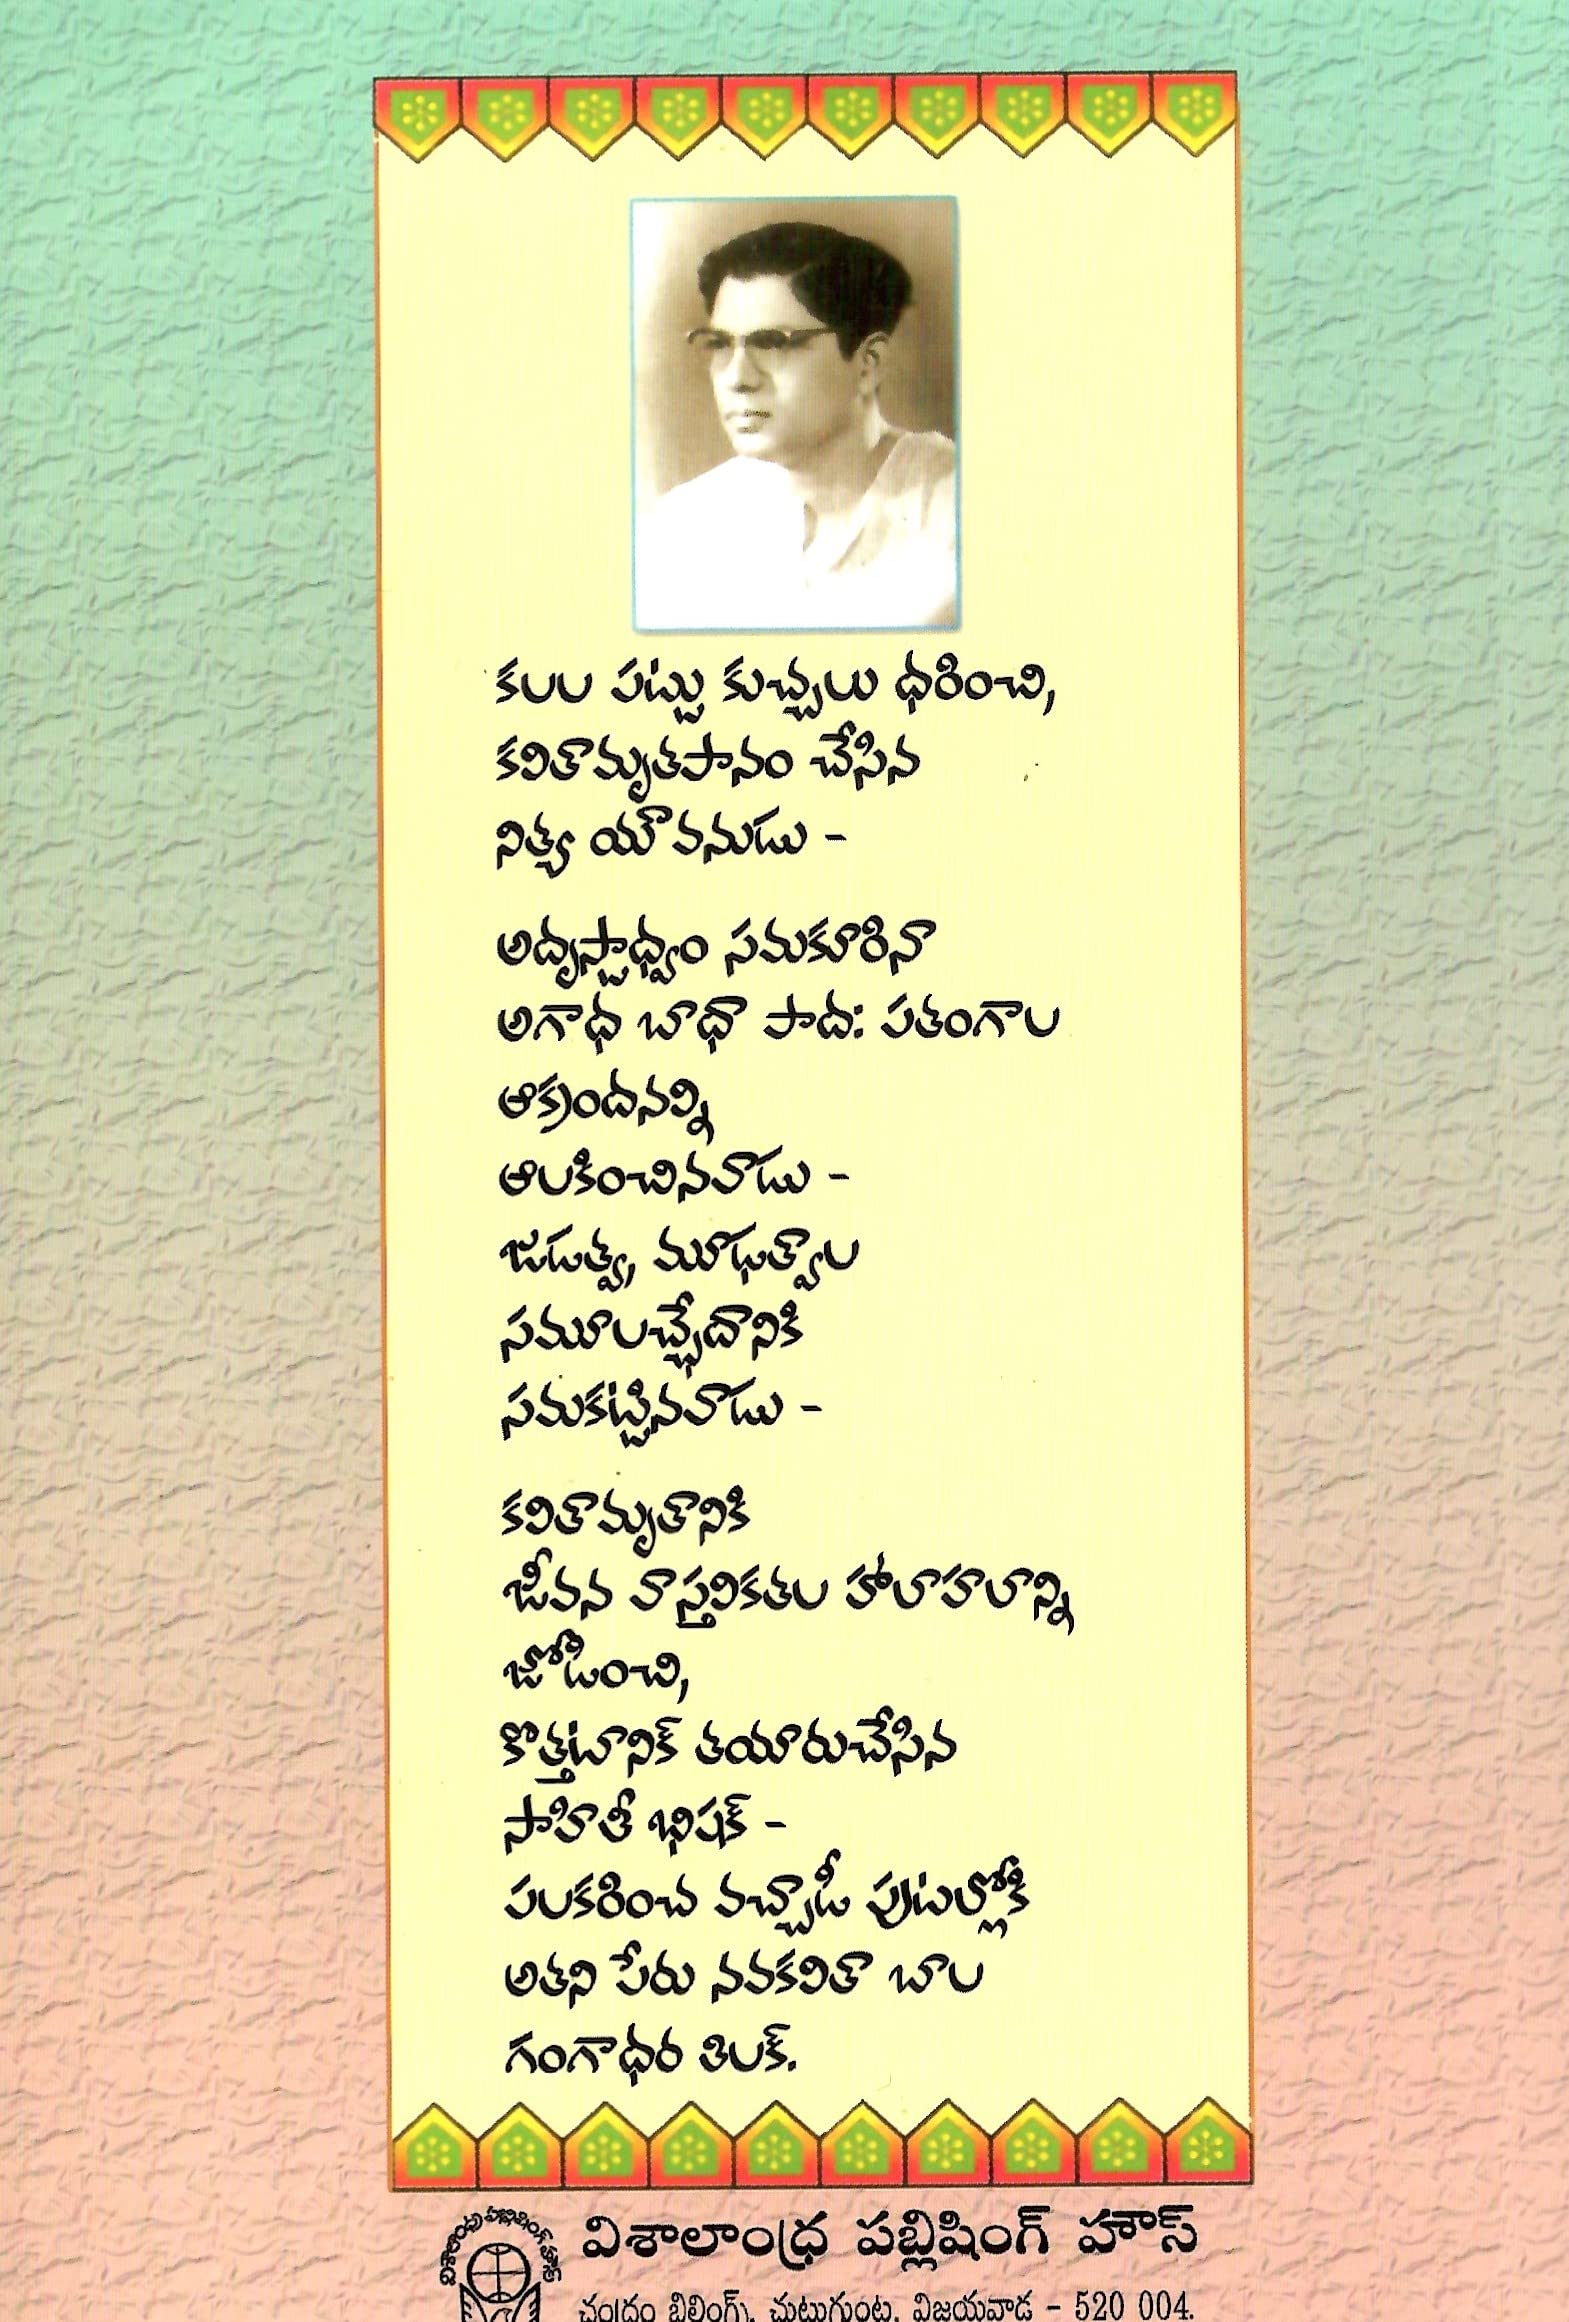 కలల పట్టు కుచ్చులు ధరించి,
కవితామృతపానం చేసిన
నిత్య యౌవనుడు -
అదృష్టాధ్వం సమకూరినా
అగాధ బాధా పాదః పతంగాల
ఆక్రందనన్ని
ఆలకించినవాడు -
జడత్వ, మూఢత్వాల
సమూలచ్ఛేదానికి
సమకట్టినవాడు -
కవితామృతానికి
జీవన వాస్తవికతల హాలాహలాన్ని
జోడించి,
కొత్తటానిక్ తయారుచేసిన
సాహితీ భిషక్ -
పలకరించ వచ్చాడీ పుటల్లోకి
అతని పేరు నవకవితా బాల
గంగాధర తిలక్.
విశాలాంధ్ర పబ్లిషింగ్ హౌస్
విశాలాంధ్ర పబ్లిషింగ్ హౌస్
చంద్రం బిల్డింగ్స్, చుట్టుగుంట, విజయవాడ - 520 004.